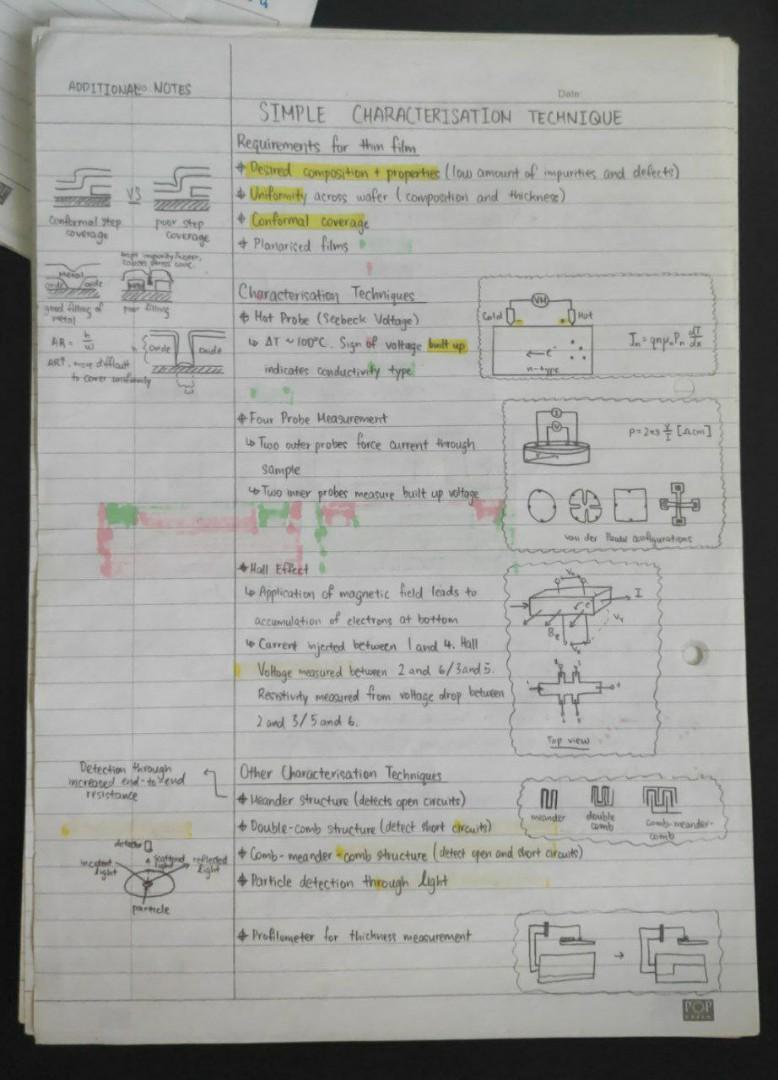 ADDITIONAL NOTES
Date:
SIMPLE CHARACTERISATION TECHNIQUE
Requirements for thin film
* Desired composition + properties (low amount of impurities and defects)
* Uniformity across wafer (composition and thickness)
* Conformal coverage
* Planarised films
VS
Conformal step
coverage
poor step
coverage
Metal
oxide
oxide
good filling of
metal
poor filling
AR = h/w
AR↑, more difficult
to cover conformally
Oxide
Oxide
Characterisation Techniques
* Hot Probe (Seebeck Voltage)
↳ ΔT ~ 100°C. Sign of voltage built up
indicates conductivity type
VH
Cold
Hot
- +
← e⁻
n-type
Jn = qnμnPn dT/dx
* Four Probe Measurement
↳ Two outer probes force current through
sample
↳ Two inner probes measure built up voltage
I
V
ρ = 2πs V/I [Ωcm]
van der Pauw configurations
* Hall Effect
↳ Application of magnetic field leads to
accumulation of electrons at bottom
↳ Current injected between 1 and 4. Hall
Voltage measured between 2 and 6/3 and 5.
Resistivity measured from voltage drop between
2 and 3/5 and 6.
I
Top view
Detection through
increased end-to-end
resistance
Other Characterisation Techniques
* Meander structure (detects open circuits)
* Double-comb structure (detect short circuits)
* Comb-meander-comb structure (detect open and short circuits)
* Particle detection through light
meander
double
comb
comb-meander-
comb
detector
incident
light
scattered
light
reflected
light
particle
* Profilometer for thickness measurement
POP